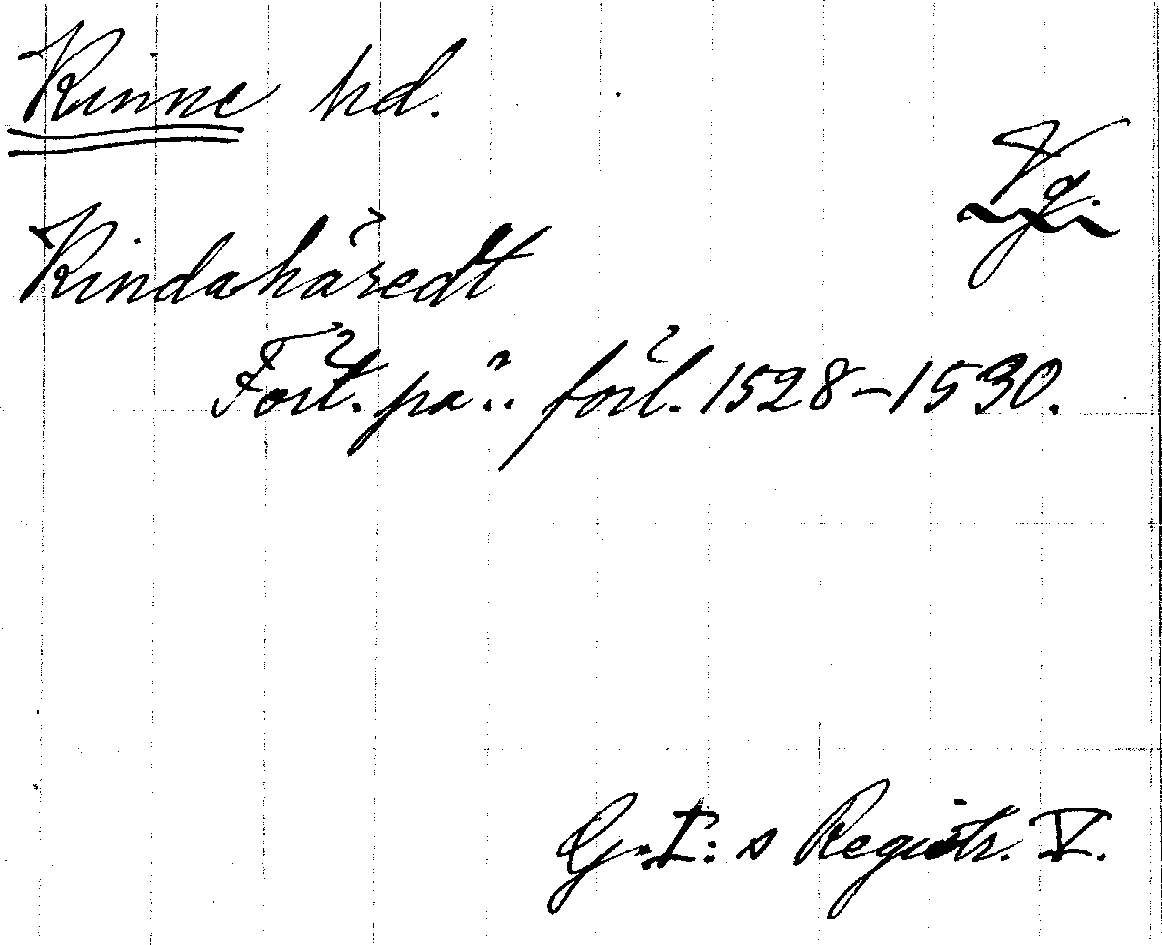 Kinne hd.
Vg.
Kindahäredt
Fört. på .. förl. 1528-1530.
G. I: s Registr. V.